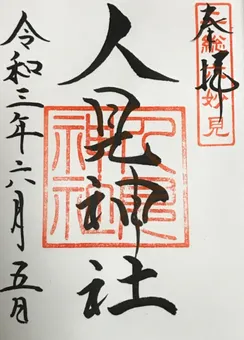 奉拝
妙見
人見神社
人見神社
令和三年六月五日